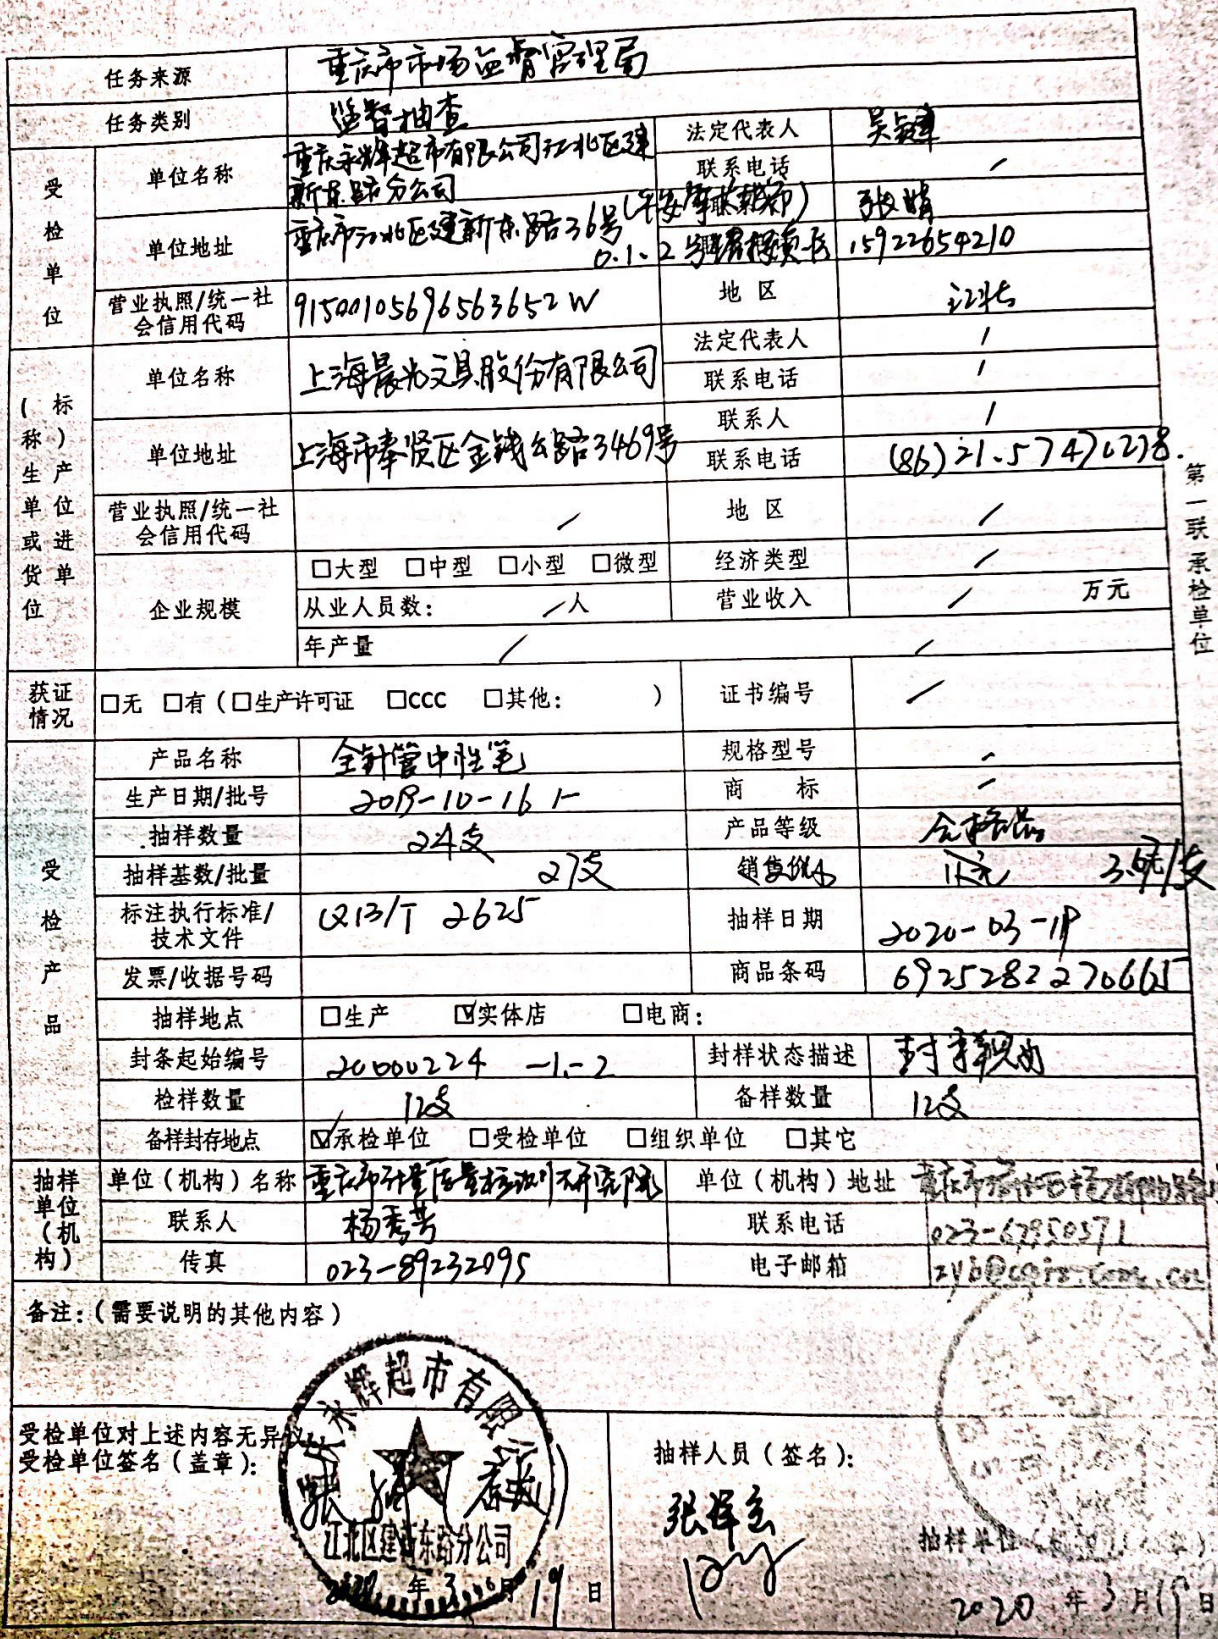 任务来源 重庆市市场监督管理局
任务类别 监督抽查
受检单位
单位名称 重庆永辉超市有限公司江北区建
新东路分公司
法定代表人
联系电话 /
单位地址 重庆市江北区建新东路36号(
0.1.2
张婧
15922654210
营业执照/统一社
会信用代码 91500105696563652W
地 区 江北
(标称)生产单位或进货单位
单位名称 上海晨光文具股份有限公司
法定代表人 /
联系电话 /
单位地址 上海市奉贤区金钱公路3469号
联系人 /
联系电话 (86)21-57470278.
营业执照/统一社
会信用代码 /
地 区 /
企业规模
□大型 □中型 □小型 □微型
经济类型 /
从业人员数: /人
营业收入 / 万元
年产量 / /
获证
情况
□无 □有(□生产许可证 □CCC □其他: )
证书编号 /
受检产品
产品名称 全针管中性笔
规格型号 /
生产日期/批号 2019-10-16
商 标 /
抽样数量 24支
产品等级 合格品
抽样基数/批量 27支
销售
标注执行标准/
技术文件 QB/T 2625
抽样日期 2020-03-19
发票/收据号码
商品条码 6925282270665
抽样地点 □生产 ☑实体店 □电商:
封条起始编号 20000224 -1-2
封样状态描述
检样数量 12支
备样数量 12支
备样封存地点 ☑承检单位 □受检单位 □组织单位 □其它
抽样
单位
(机
构)
单位(机构)名称 重庆市计量质量检测研究院
单位(机构)地址
联系人 杨秀芳
联系电话 023-67950571
传真 023-89232095
电子邮箱
备注:(需要说明的其他内容)
第一联 承检单位
受检单位对上述内容无异议
受检单位签名(盖章):
重庆永辉超市有限公司
江北区建新东路分公司
2020年3月19日
抽样人员(签名):
抽样单位
2020年3月19日